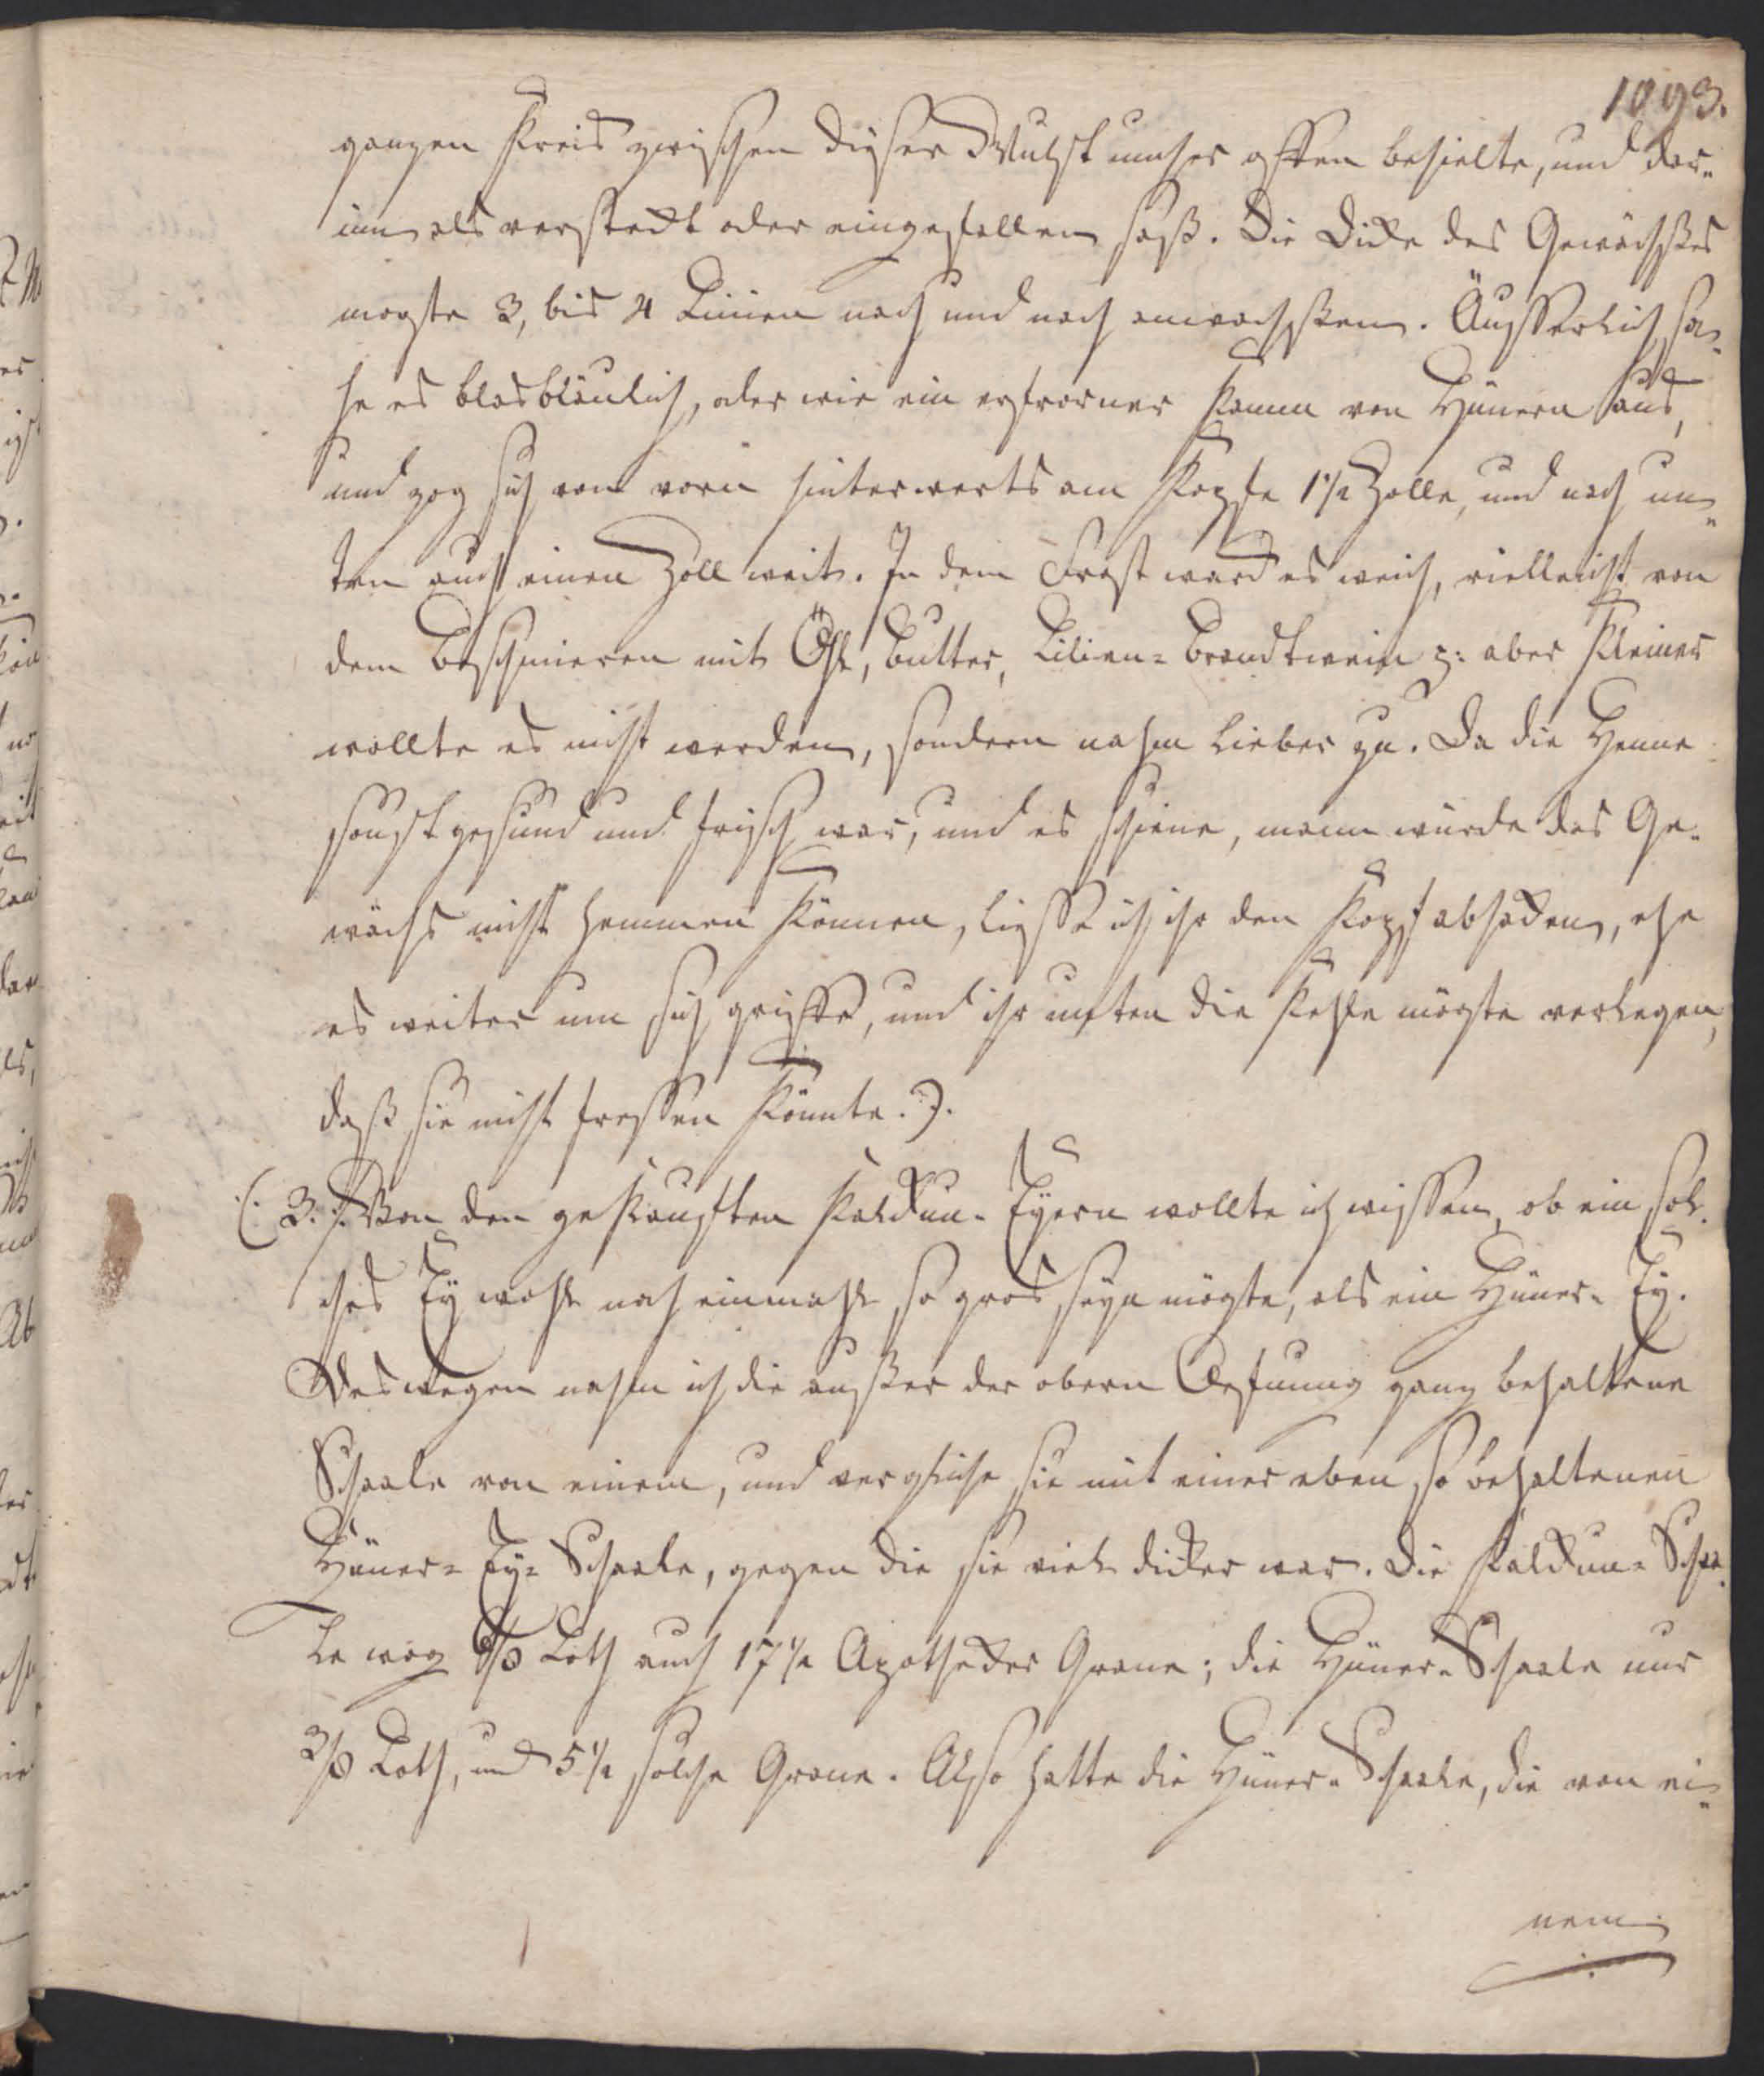 1093.
ganzen Kreis zwischen dieser Wulst umher offen behielte, und dar„
inn als verstekt oder eingefallen saß. Die Dike des Gewächsses
mogte 3, bis 4 Linien nach und nach anwachssen. Äusserlich sa„
he es blasbläulich, oder wie ein erfrorner Kamm von Hünern aus,
und zog sich von vorn hinterwerts am Kopfe 1½ Zolle, und nach un„
ten auch einen Zoll weit. In dem Frost ward es weich, vielleicht von
dem beschmieren mit Öhl, Butter, Lilien= Brandtwein p: aber Kleiner
wollte es nicht werden, sondern nahm lieber zu. Da die Henne
sonst gesund und frisch war, und es schiene, mann würde das Ge„
wächs nicht hemmen können, liesse ich ihr den Kopf abhaken, ehe
es weiter um sich griffe, und ihr unten die Kehle mögte verlegen,
daß sie nicht fressen könnte.).
(: 3. :) Von den gekauften Kalkun= Eyern wollte ich wissen, ob ein sol„
ches Ey wohl noch einmahl so gros seyn mögte, als ein Hüner= Ey.
Deswegen nahm ich die ausser der obern Oefnung ganz behaltene
Schaale von einem, und vergliche sie mit einer eben so behaltenen
Hüner= Ey= Schaale, gegen die sie viel diker war. Die Kalkun= Schaa„
le wog 6/8 Loth auch 17½ Apotheker Grane; die Hüner= Schaale nur
3/8 Loth, und 5½ solche Grane. Also hatte die Hüner= Schaale, die von ei„
nem